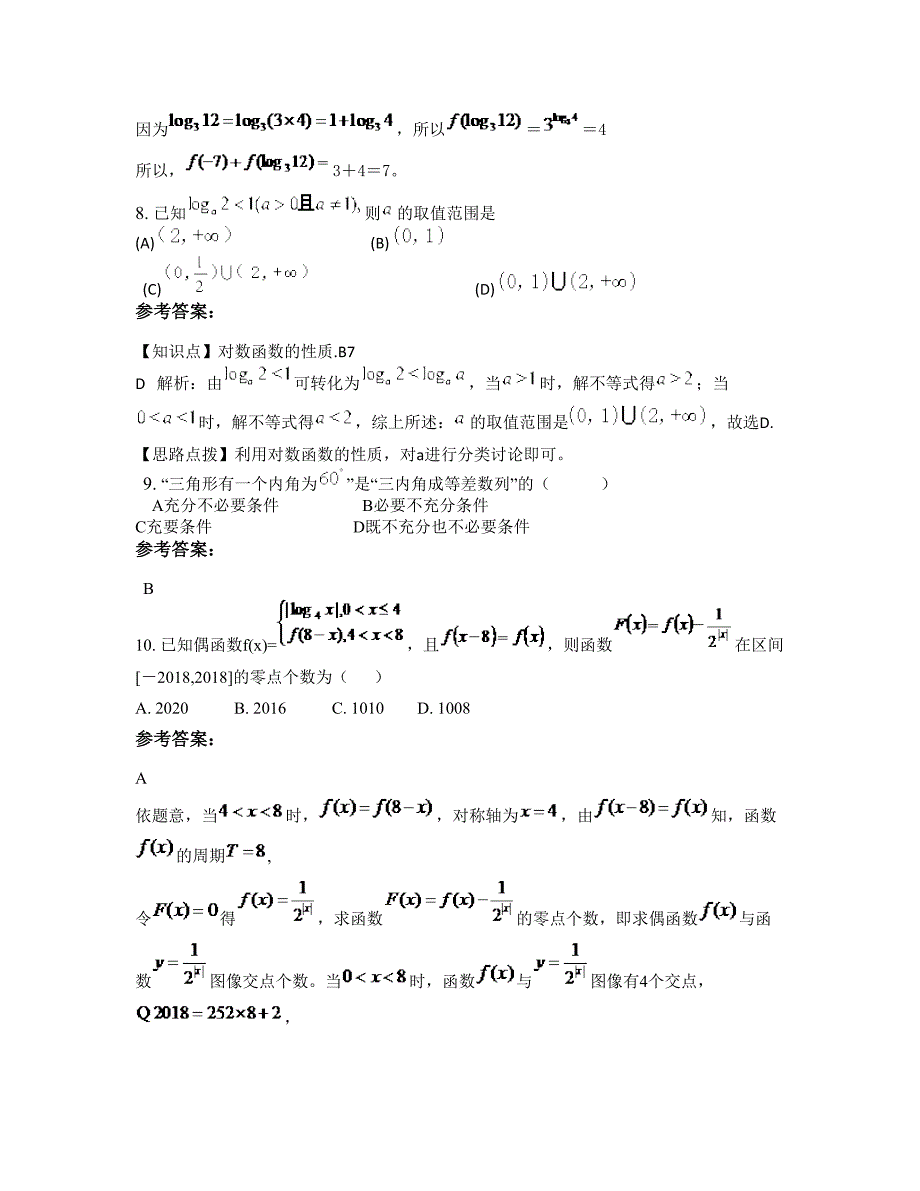 因为log₃12=log₃(3×4)=1+log₃4，所以f(log₃12)=3^{log₃4}=4
所以，f(−7)+f(log₃12)=3+4=7。
8. 已知log_a 2<1(a>0且a≠1),则a的取值范围是
(A)(2,+∞) (B)(0,1)
(C)(0,1/2)∪(2,+∞) (D)(0,1)∪(2,+∞)
参考答案：
【知识点】对数函数的性质.B7
D 解析：由log_a 2<1可转化为log_a 2<log_a a，当a>1时，解不等式得a>2；当
0<a<1时，解不等式得a<2，综上所述：a的取值范围是(0,1)∪(2,+∞)，故选D.
【思路点拨】利用对数函数的性质，对a进行分类讨论即可。
9. “三角形有一个内角为60°”是“三内角成等差数列”的（ ）
A充分不必要条件 B必要不充分条件
C充要条件 D既不充分也不必要条件
参考答案：
B
10. 已知偶函数f(x)={|log₄x|,0<x≤4 f(8−x),4<x<8，且f(x−8)=f(x)，则函数F(x)=f(x)−1/2^{|x|}在区间
[－2018,2018]的零点个数为（ ）
A. 2020 B. 2016 C. 1010 D. 1008
参考答案：
A
依题意，当4<x<8时，f(x)=f(8−x)，对称轴为x=4，由f(x−8)=f(x)知，函数
f(x)的周期T=8，
令F(x)=0得f(x)=1/2^{|x|}，求函数F(x)=f(x)−1/2^{|x|}的零点个数，即求偶函数f(x)与函
数y=1/2^{|x|}图像交点个数。当0<x<8时，函数f(x)与y=1/2^{|x|}图像有4个交点，
Q 2018=252×8+2，